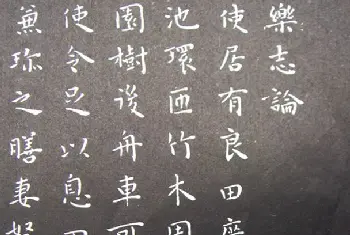 樂志論
使居有良田
池環匝竹木周
園樹後舟車可
使令足以息
兼珍之膳妻